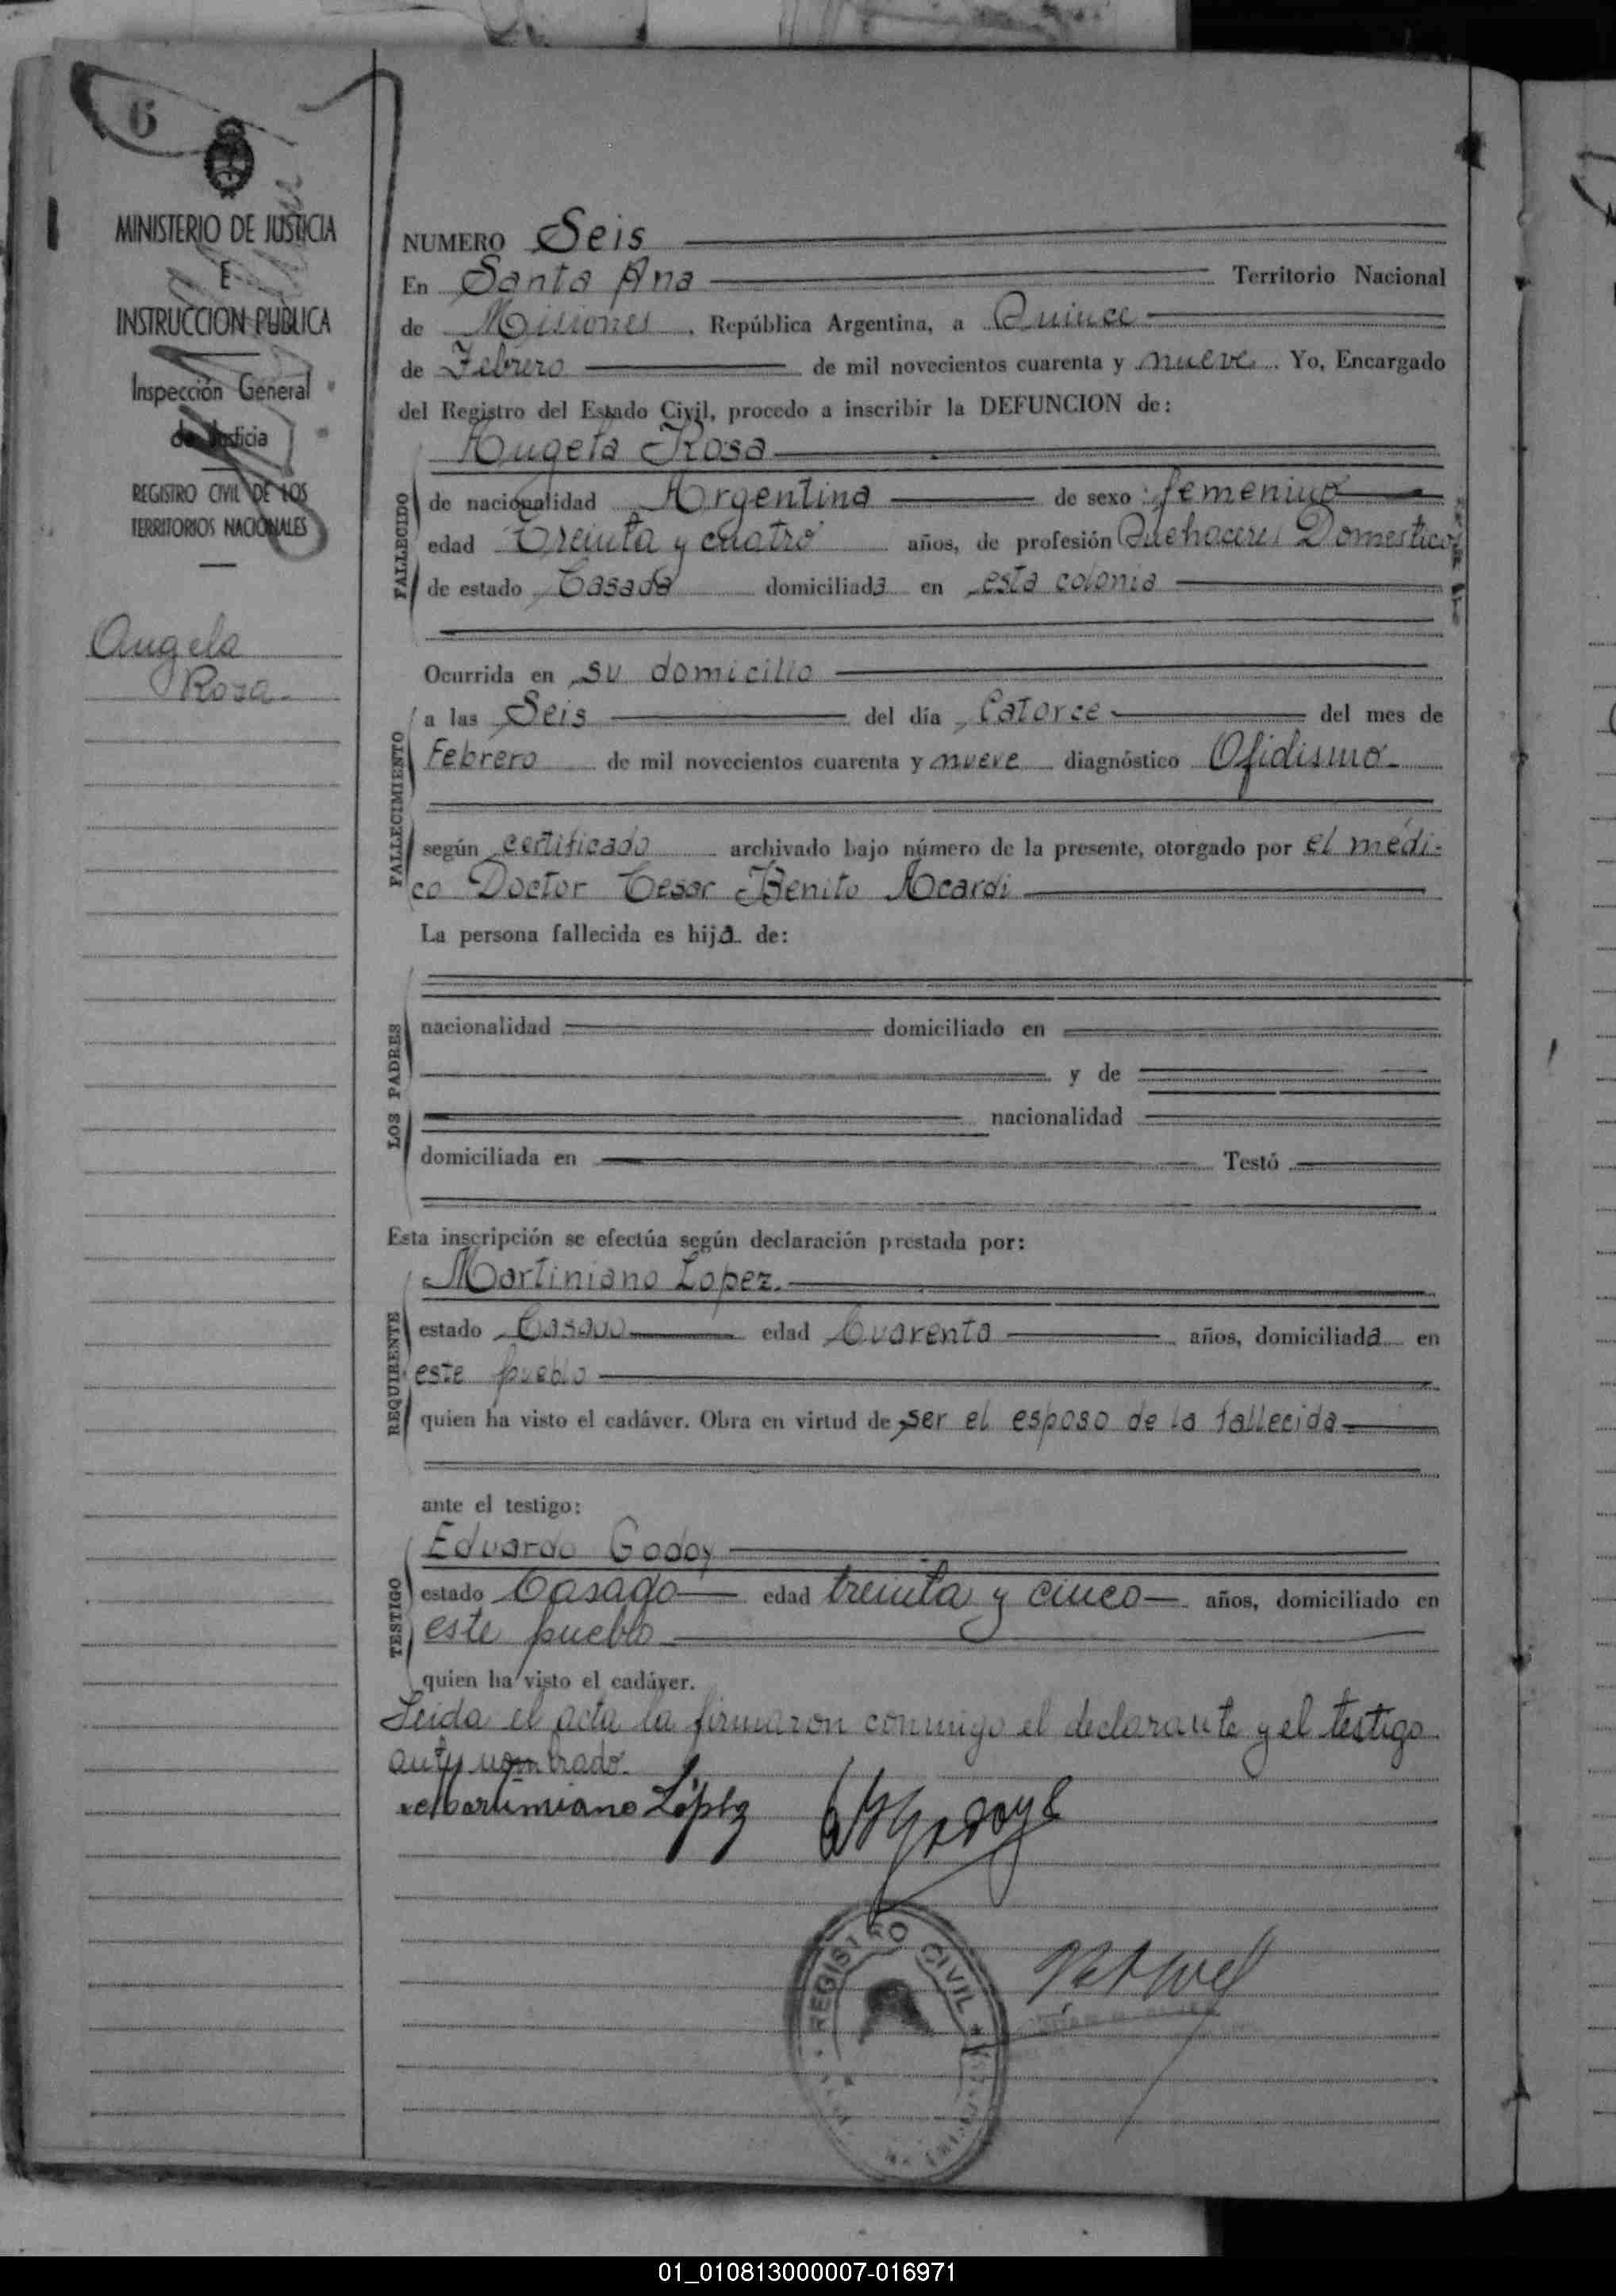 6
MINISTERIO DE JUSTICIA
E
INSTRUCCION PUBLICA
Inspección General
de Justicia
REGISTRO CIVIL DE LOS
TERRITORIOS NACIONALES
Angela
Rosa
NUMERO Seis
En Santa Ana Territorio Nacional
de Misiones, República Argentina, a Quince
de Febrero de mil novecientos cuarenta y nueve. Yo, Encargado
del Registro del Estado Civil, procedo a inscribir la DEFUNCION de:
Angela Rosa
FALLECIDO
de nacionalidad Argentina de sexo femenino
edad Treinta y cuatro años, de profesión Quehaceres Domesticos
de estado Casada domiciliada en esta colonia
Ocurrida en su domicilio
FALLECIMIENTO
a las Seis del día Catorce del mes de
Febrero de mil novecientos cuarenta y nueve diagnóstico Ofidismo
según certificado archivado bajo número de la presente, otorgado por el médi-
co Doctor Cesar Benito Acardi
La persona fallecida es hija de:
LOS PADRES
nacionalidad domiciliado en
y de
nacionalidad
domiciliada en Testó
Esta inscripción se efectúa según declaración prestada por:
Martiniano Lopez.
REQUIRENTE
estado Casado edad Cuarenta años, domiciliada en
este pueblo
quien ha visto el cadáver. Obra en virtud de ser el esposo de la fallecida
ante el testigo:
Eduardo Godoy
TESTIGO
estado Casado edad treinta y cinco años, domiciliado en
este pueblo
quien ha visto el cadáver.
Leida el acta la firmaron conmigo el declarante y el testigo
antes nombrado.
Martimiano López
REGISTRO CIVIL
01_010813000007-016971